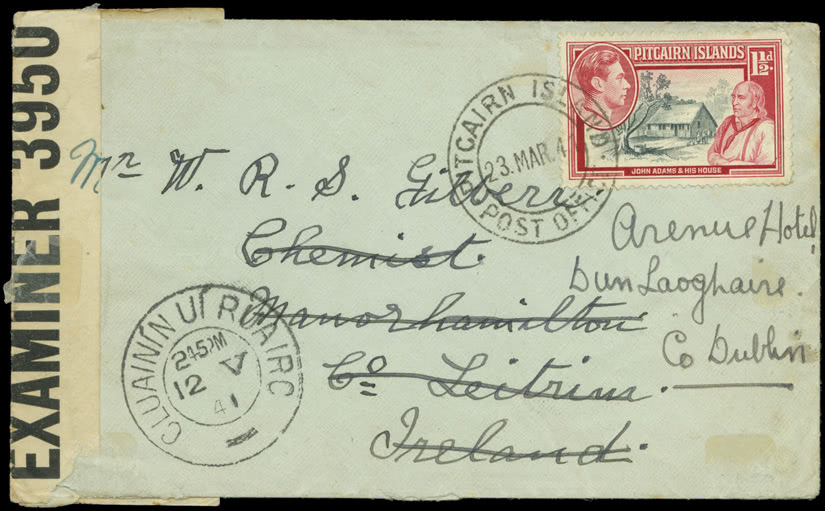 EXAMINER 3950
PITCAIRN ISLANDS
1½d
JOHN ADAMS & HIS HOUSE
PITCAIRN ISLAND.
23.MAR.4
POST OFFI
Mr W. R. S. Gilbert
Chemist.
Manorhamilton
Co Leitrim.
Ireland.
Avenue Hotel,
Dun Laoghaire.
Co Dublin
CLUAINÍN UÍ RUAIRC
245PM
12 V
41